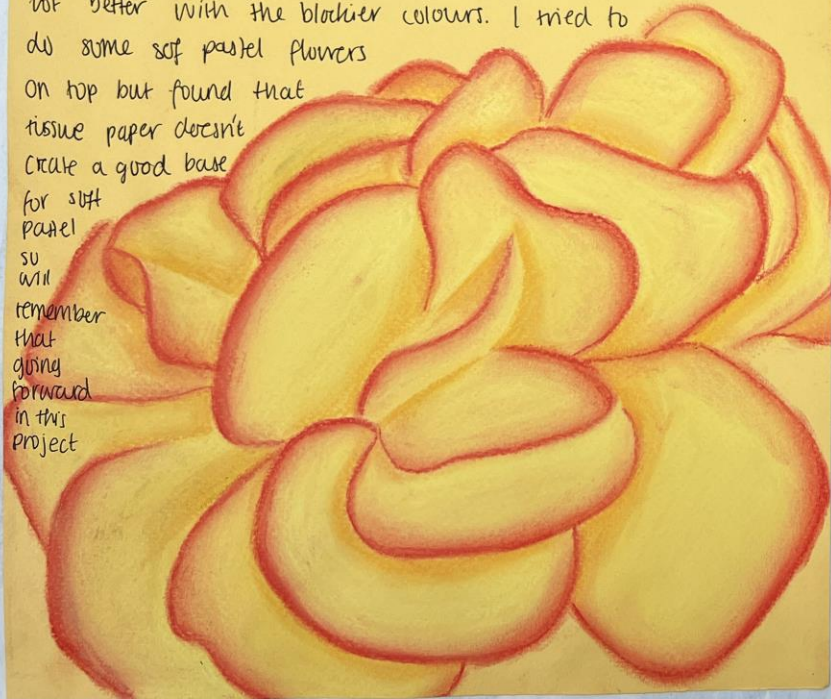 better with the blockier colours. I tried to
do some sof pastel flowers
on top but found that
tissue paper doesn't
create a good base
for soft
pastel
so
will
remember
that
going
forward
in this
project